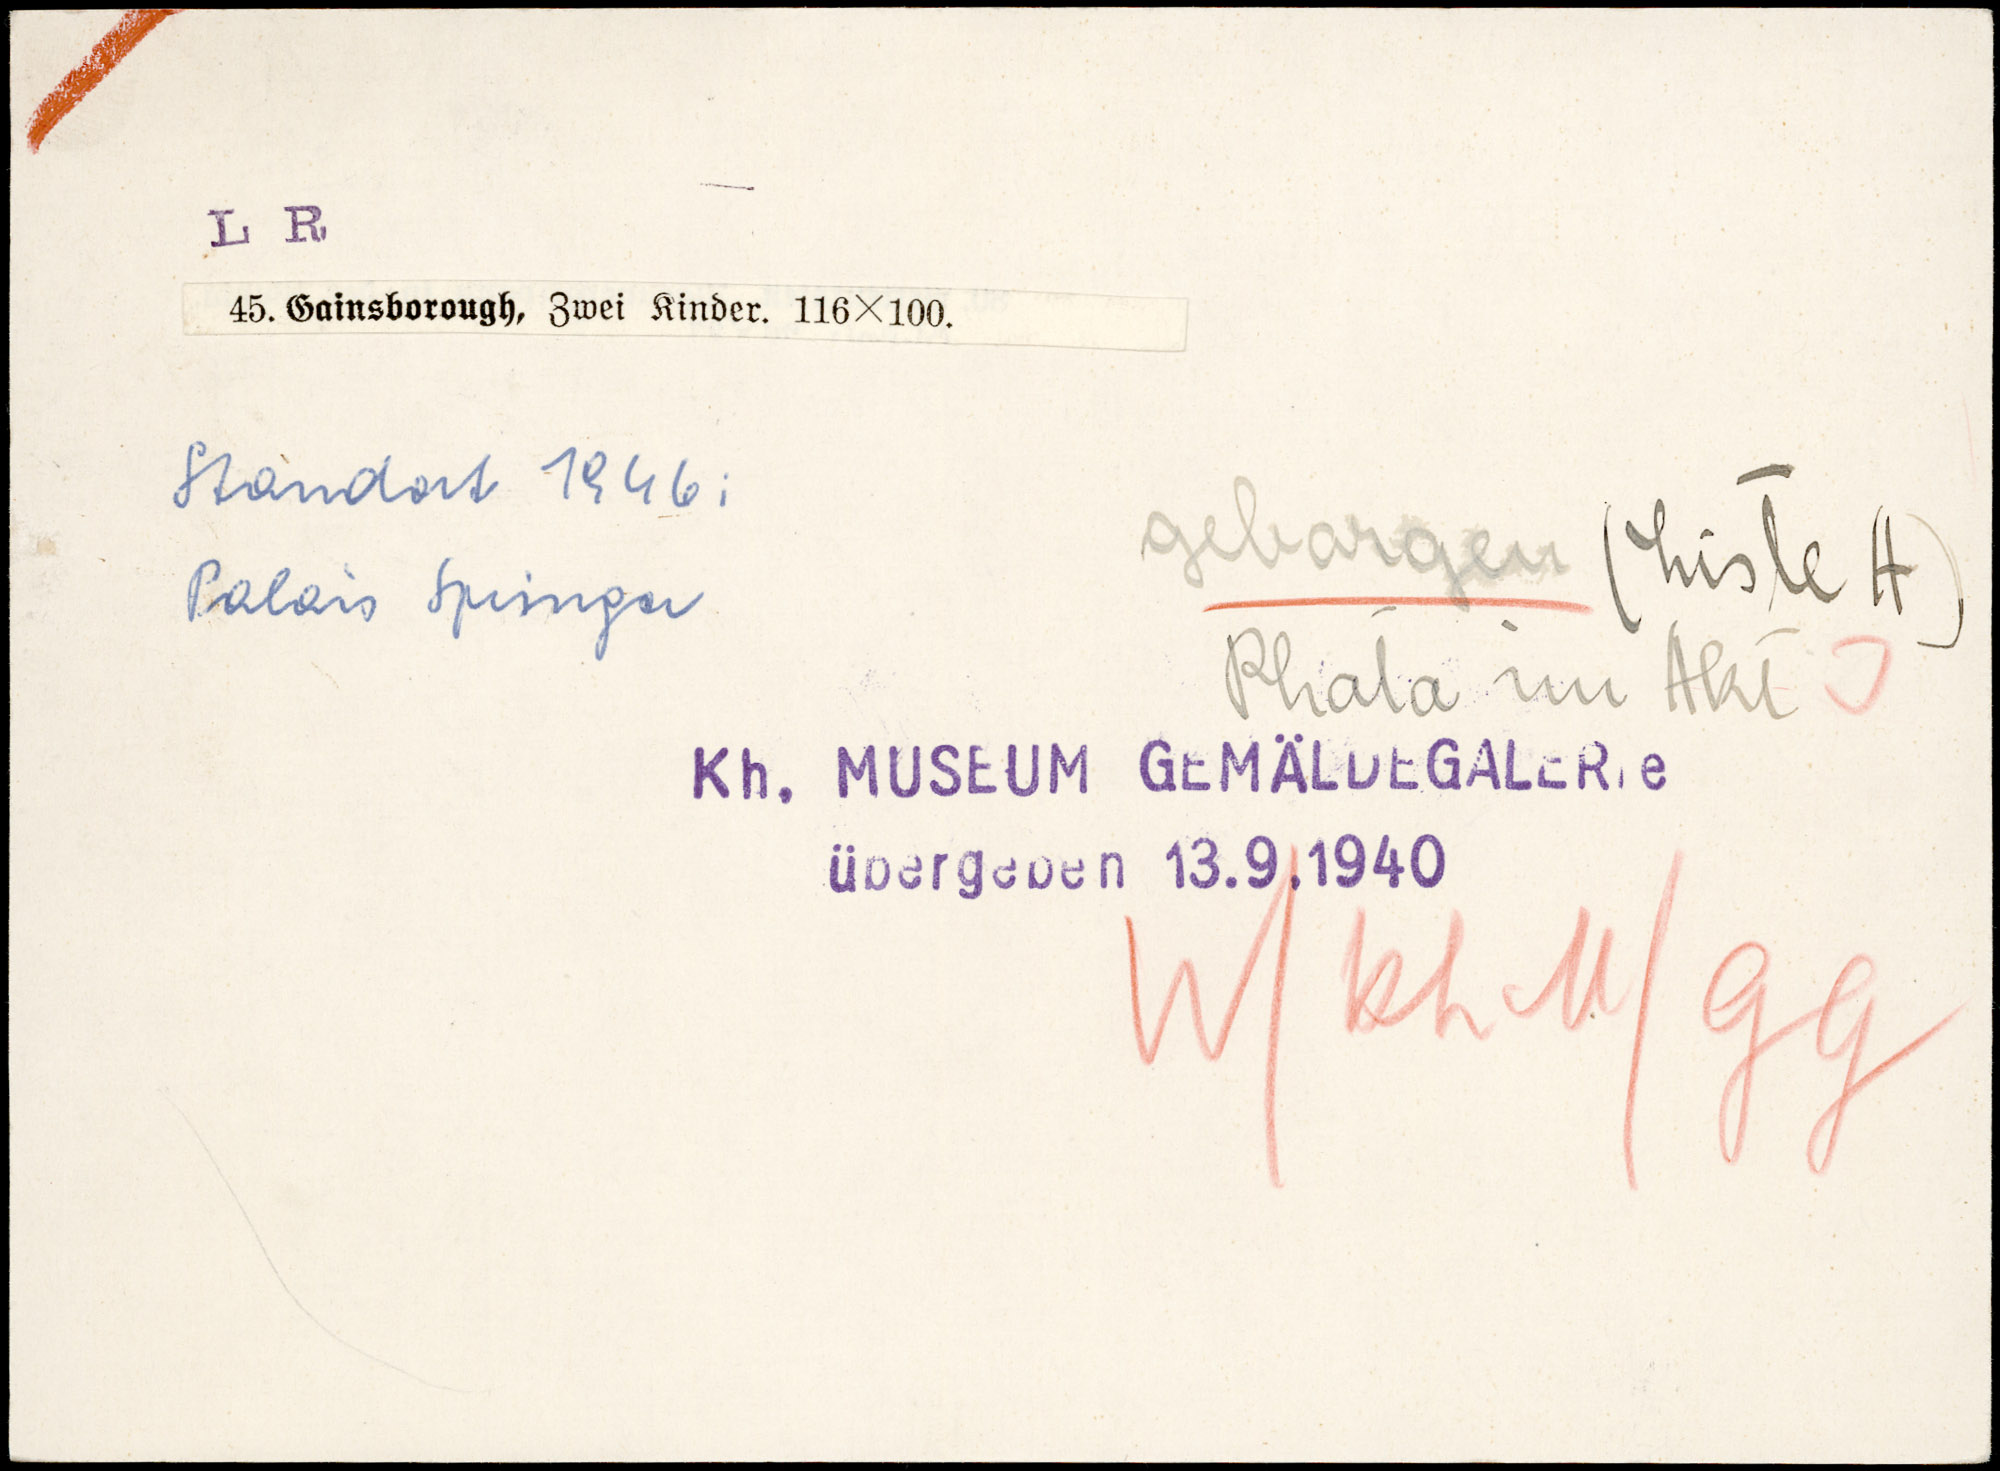 L R
45. Gainsborough, Zwei Kinder. 116×100.
Standort 1946:
Palais Springer
geborgen (Liste A)
Photo im Akt
Kh. MUSEUM GEMÄLDEGALERie
übergeben 13.9.1940
W/khM/GG